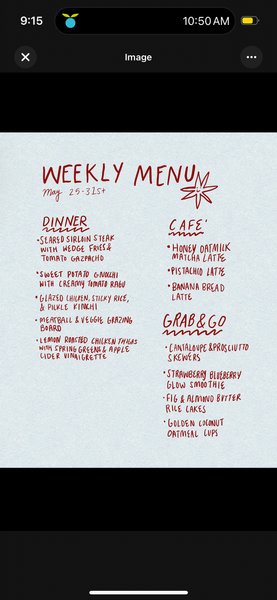 9:15
10:50 AM
Image
WEEKLY MENU
May 25-31st
DINNER
• SEARED SIRLOIN STEAK
WITH WEDGE FRIES &
TOMATO GAZPACHO
• SWEET POTATO GNOCHI
WITH CREAMY TOMATO RAGU
• GLAZED CHICKEN, STICKY RICE,
& PICKLE KIMCHI
• MEATBALL & VEGGIE GRAZING
BOARD
• LEMON ROASTED CHICKEN THIGHS
WITH SPRING GREENS & APPLE
CIDER VINAIGRETTE
CAFE'
• HONEY OATMILK
MATCHA LATTE
• PISTACHIO LATTE
• BANANA BREAD
LATTE
GRAB & GO
• CANTALOUPE & PROSCIUTTO
SKEWERS
• STRAWBERRY BLUEBERRY
GLOW SMOOTHIE
• FIG & ALMOND BUTTER
RICE CAKES
• GOLDEN COCONUT
OATMEAL CUPS